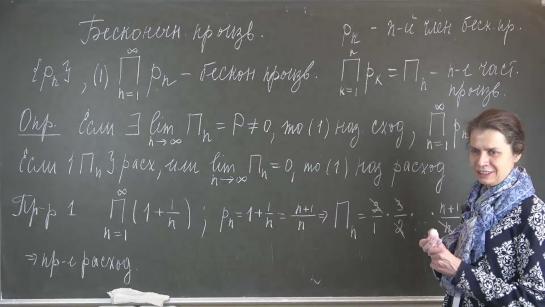 Бесконечн. произв.
p_n - n-й член беск. пр.
{p_n}, (1) ∏_{n=1}^{∞} p_n - бескон произв.
∏_{k=1}^{n} p_k = Π_n - n-е част. произв.
Опр. Если ∃ lim_{n→∞} Π_n = P ≠ 0, то (1) наз сход, ∏_{n=1}^{∞} p
Если {Π_n} расх, или lim_{n→∞} Π_n = 0, то (1) наз расход
Пр-р 1 ∏_{n=1}^{∞} (1 + 1/n); p_n = 1 + 1/n = (n+1)/n ⇒ Π_n = 2/1 · 3/2 · ... · (n+1)/
⇒ пр-е расход.